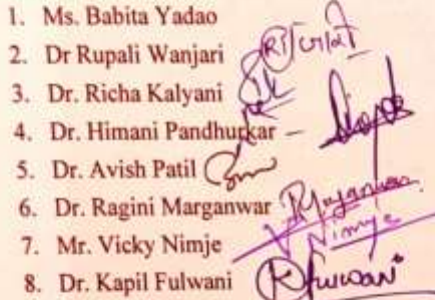 1. Ms. Babita Yadao
2. Dr Rupali Wanjari
3. Dr. Richa Kalyani
4. Dr. Himani Pandhurkar –
5. Dr. Avish Patil
6. Dr. Ragini Marganwar
7. Mr. Vicky Nimje Nimje
8. Dr. Kapil Fulwani